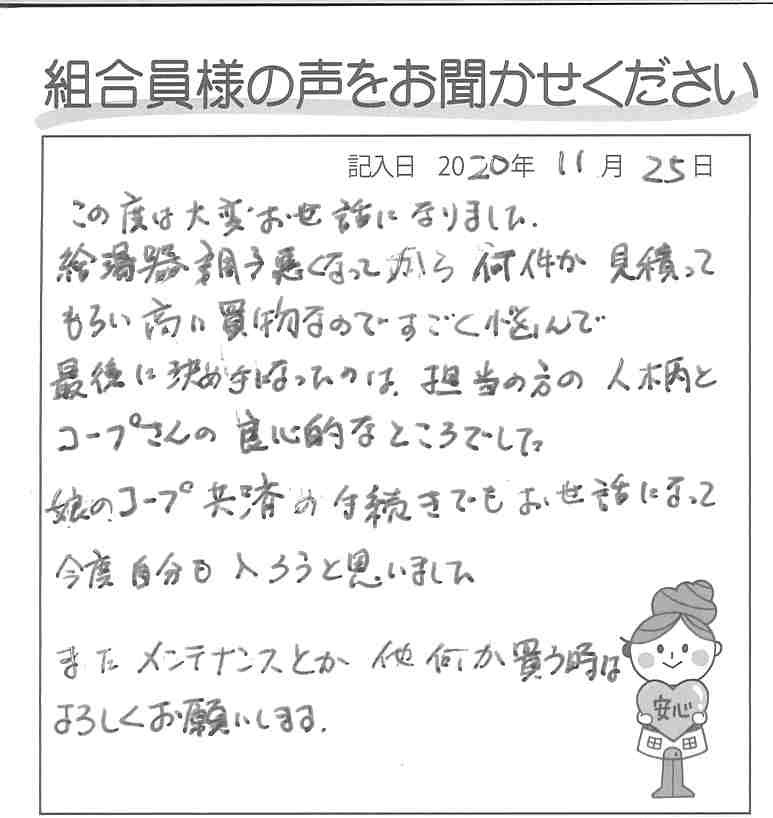 組合員様の声をお聞かせください
記入日 2020年 11月 25日
この度は大変お世話になりました.
給湯器調子悪くなってから 何件か 見積って
もらい 高い買物なのですごく悩んで
最後に決め手になったのは、担当の方の 人柄と
コープさんの 良心的なところでした。
娘のコープ共済の手続きでもお世話になって
今度自分も 入ろうと思いました
また メンテナンスとか 他 何か買う時は
よろしくお願いします.
安心